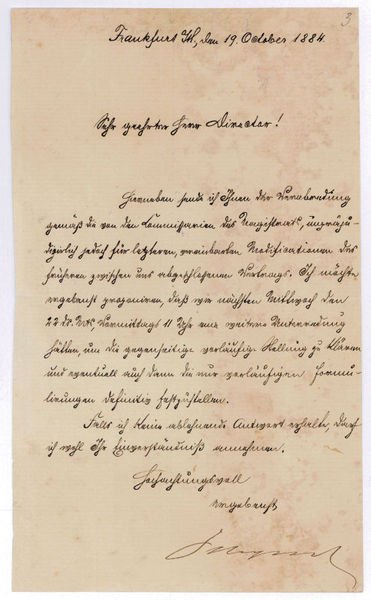 3
Frankfurt a/M, den 19. October 1884.
Sehr geehrter Herr Director!
Hierneben sende ich Ihnen der Verabredung
gemäß die von den Commissarien des Magistrats, unpräju-
dizirlich jedoch für letzteren, vereinbarten Modificationen des
früheren zwischen uns abgeschlossenen Vertrags. Ich möchte
ergebenst proponiren, daß wir nächsten Mittwoch den
22 ds. Mts, Vormittags 11 Uhr eine weitere Unterredung
hätten, um die gegenseitige vorläufige Stellung zu klären
und eventuell auch dann die nur vorläufigen Formu-
lirungen definitiv festzustellen.
Falls ich keine ablehnende Antwort erhalte, darf
ich wohl Ihr Einverständniß annehmen.
Hochachtungsvoll
ergebenst